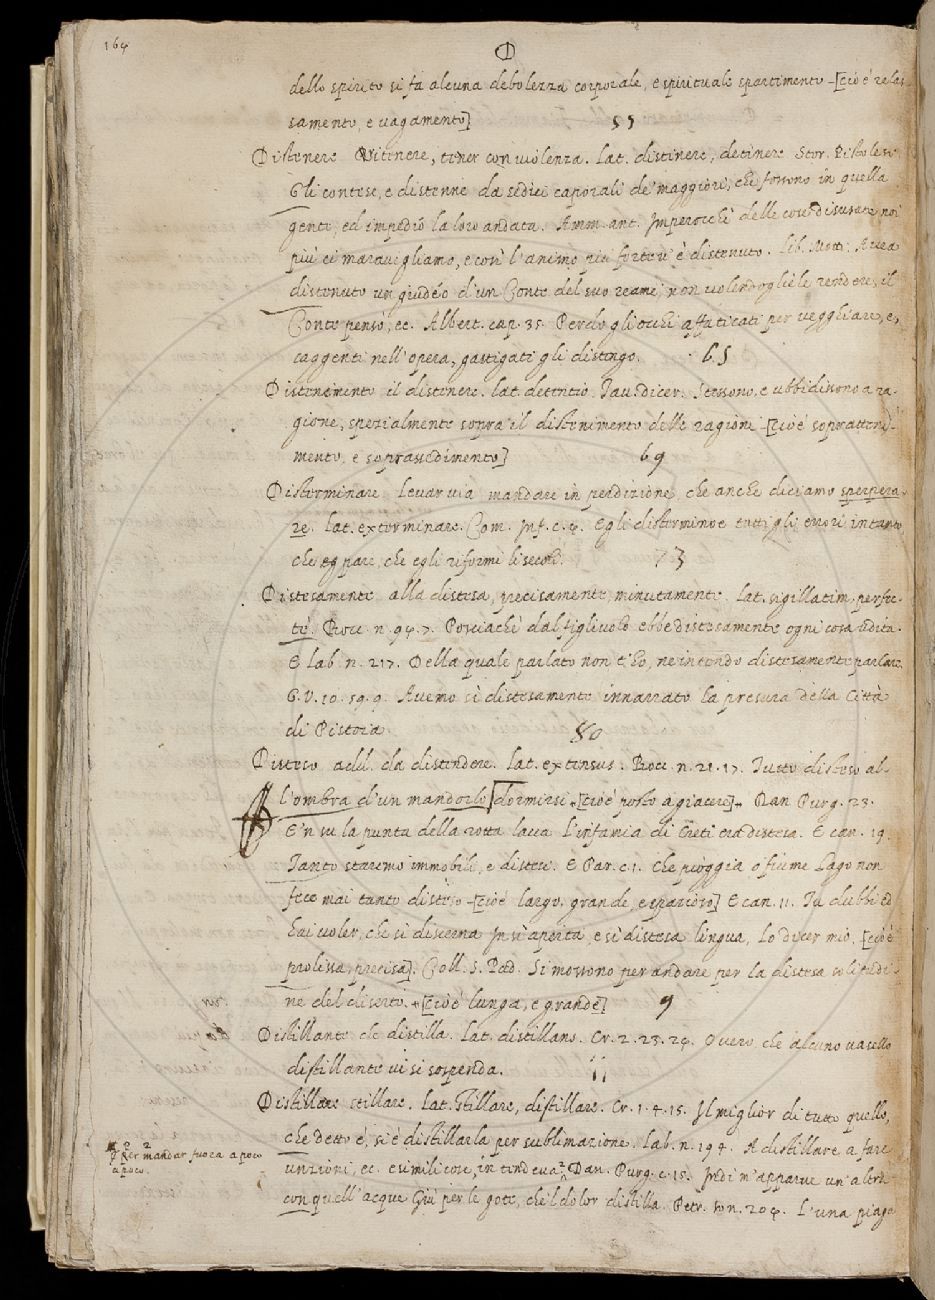 164
D
dello spirito si fa alcuna debolezza corporale, e spirituale spartimento [cioè relas
samento, e vagamento] 55
Distenere Ritenere, tener con violenza. Lat. distinere, detinere Stor. Pistolesi
Gli contese, e distenne da sedici caporali de' maggiori, che fossono in quella
gente, ed impedio la loro andata. Amm. ant. Imperocchè delle cose disusate noi
più ci maravegliamo, e così l'animo più forte v'è distenuto. Lib. Mott. Avea
distenuto un giudeo d'un Conte del suo reame; non volendogliele rendere; il
Conte pensò, ec. Albert. cap. 35. Perche gli occhi affaticati per vegghiare, e,
caggenti nell'opera, gastigati gli distengo. 65
Distenimento il distenere. lat. detentio. Tav. dicer. Stessono, e ubbidissono a ra-
gione, spezialmente sopra il distenimento delle ragioni [cioè soprattieni-
mento, e soprassedimento] 69
Disterminare Levar via mandare in perdizione, che anche diciamo sperpera-
re. Lat. exterminare. Com. Inf. c. 4. Egli distermino e tutti gli errori intanto
che pare, che egli riformi li secoli. 73
Distesamente alla distesa, precisamente, minutamente. Lat. sigillatim. perfec-
te. Bocc. n. 94. 7. Posciachè dal figlivolo ebbe distesamente ogni cosa udita.
E Lab. n. 217. Della quale parlato non t'ho, ne intendo distesamente parlare.
G. V. 10. 59. 9. Avemo sì distesamente innarrato la presura della Città
di Pistoia 80
Disteso add. da distendere. Lat. extensus. Bocc. n. 21. 17. Tutto disteso al-
l'ombra d'un mandorlo dormirsi [cioè posto a giacere] Dan Purg. 23.
E'n su la punta della rotta lacca L'infamia di Creti era distesa. E can. 19.
Tanto staremo immobili, e distesi. E Par. c. 1. Che pioggia o fiume Lago non
fece mai tanto disteso [cioè largo, grande, e spazioso] E can. 11. Tu dubbi ed
hai voler, che si discerna In sì aperta, e sì distesa lingua, Lo dicer mio, [cioè
prolissa, precisa]. Coll. S. Pad. Si mossono per andare per la distesa solitudi-
ne del diserto. [cioè lunga, e grande] 9
Distillante che distilla. Lat. distillans. Cr. 2. 23. 24. Overo che alcuno vasello
distillante vi si sospenda. 11
Distillare stillare. Lat. stillare, distillare. Cr. 1. 4. 15. Il miglior di tutto quello,
che detto è, si è distillarla per sublimazione. Lab. n. 194. A distillare a fare
unzioni, ec. e simili cose, intendeva 2 Dan. Purg. c. 15. Indi m'apparve un'altra
con quell'acque Giù per le gote, che'l dolor distilla. Petr. son. 204. L'una piaga
2 2
Per mandar fuora a poco
a poco.